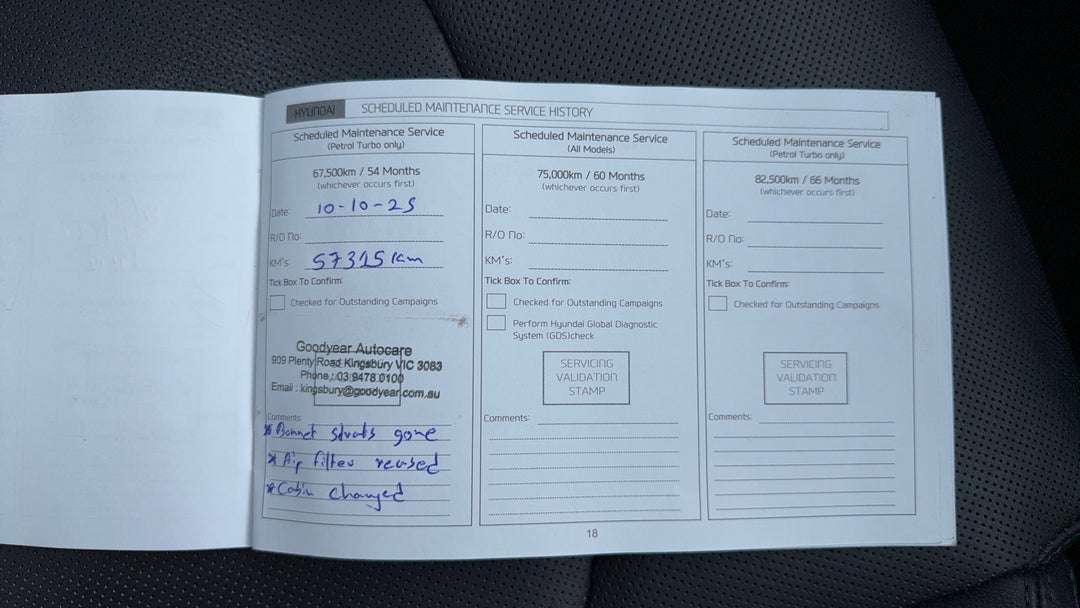 HYUNDAI SCHEDULED MAINTENANCE SERVICE HISTORY
Scheduled Maintenance Service
(Petrol Turbo only)
67,500km / 54 Months
(whichever occurs first)
Date: 10-10-25
R/O No:
KM's: 57315 km
Tick Box To Confirm:
Checked for Outstanding Campaigns
Goodyear Autocare
909 Plenty Road Kingsbury VIC 3083
Phone : 03 9478 0100
Email : kingsbury@goodyear.com.au
Comments:
* Bonnet struts gone
* Air filter reused
* Cabin changed
Scheduled Maintenance Service
(All Models)
75,000km / 60 Months
(whichever occurs first)
Date:
R/O No:
KM's:
Tick Box To Confirm:
Checked for Outstanding Campaigns
Perform Hyundai Global Diagnostic
System (GDS)check
SERVICING
VALIDATION
STAMP
Comments:
Scheduled Maintenance Service
(Petrol Turbo only)
82,500km / 66 Months
(whichever occurs first)
Date:
R/O No:
KM's:
Tick Box To Confirm:
Checked for Outstanding Campaigns
SERVICING
VALIDATION
STAMP
Comments:
18